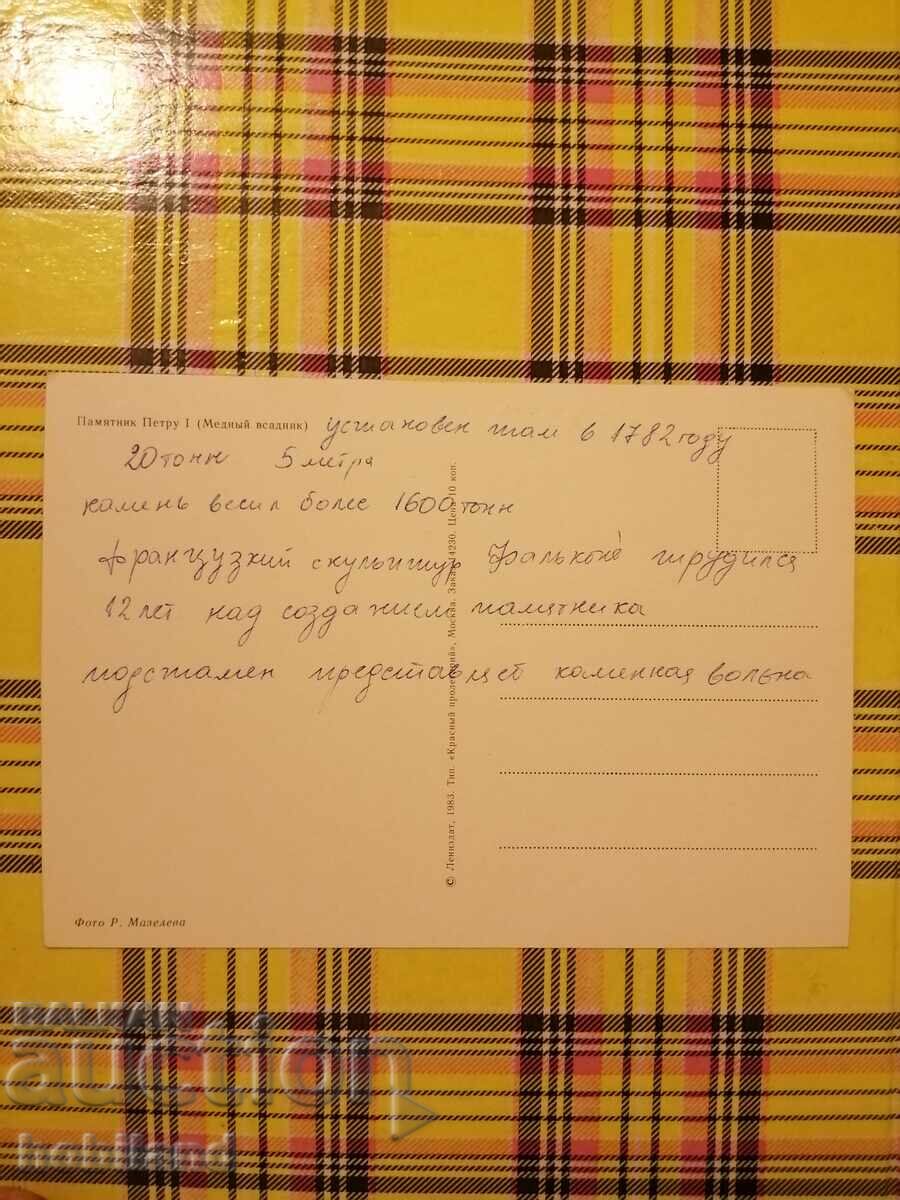 Памятник Петру I (Медный всадник) установен там в 1782 году
20 тонн 5 метра
камень весил более 1600 тонн
французкий скульптур Фальконе трудился
12 лет над создanием паметника
подстамен представляет каменная вольна
© Лениздат, 1983. Тип. «Красный пролетарий», Москва. Заказ 14230. Цена 10 коп.
Фото Р. Мазелева
BALKAN
auction
hobiland